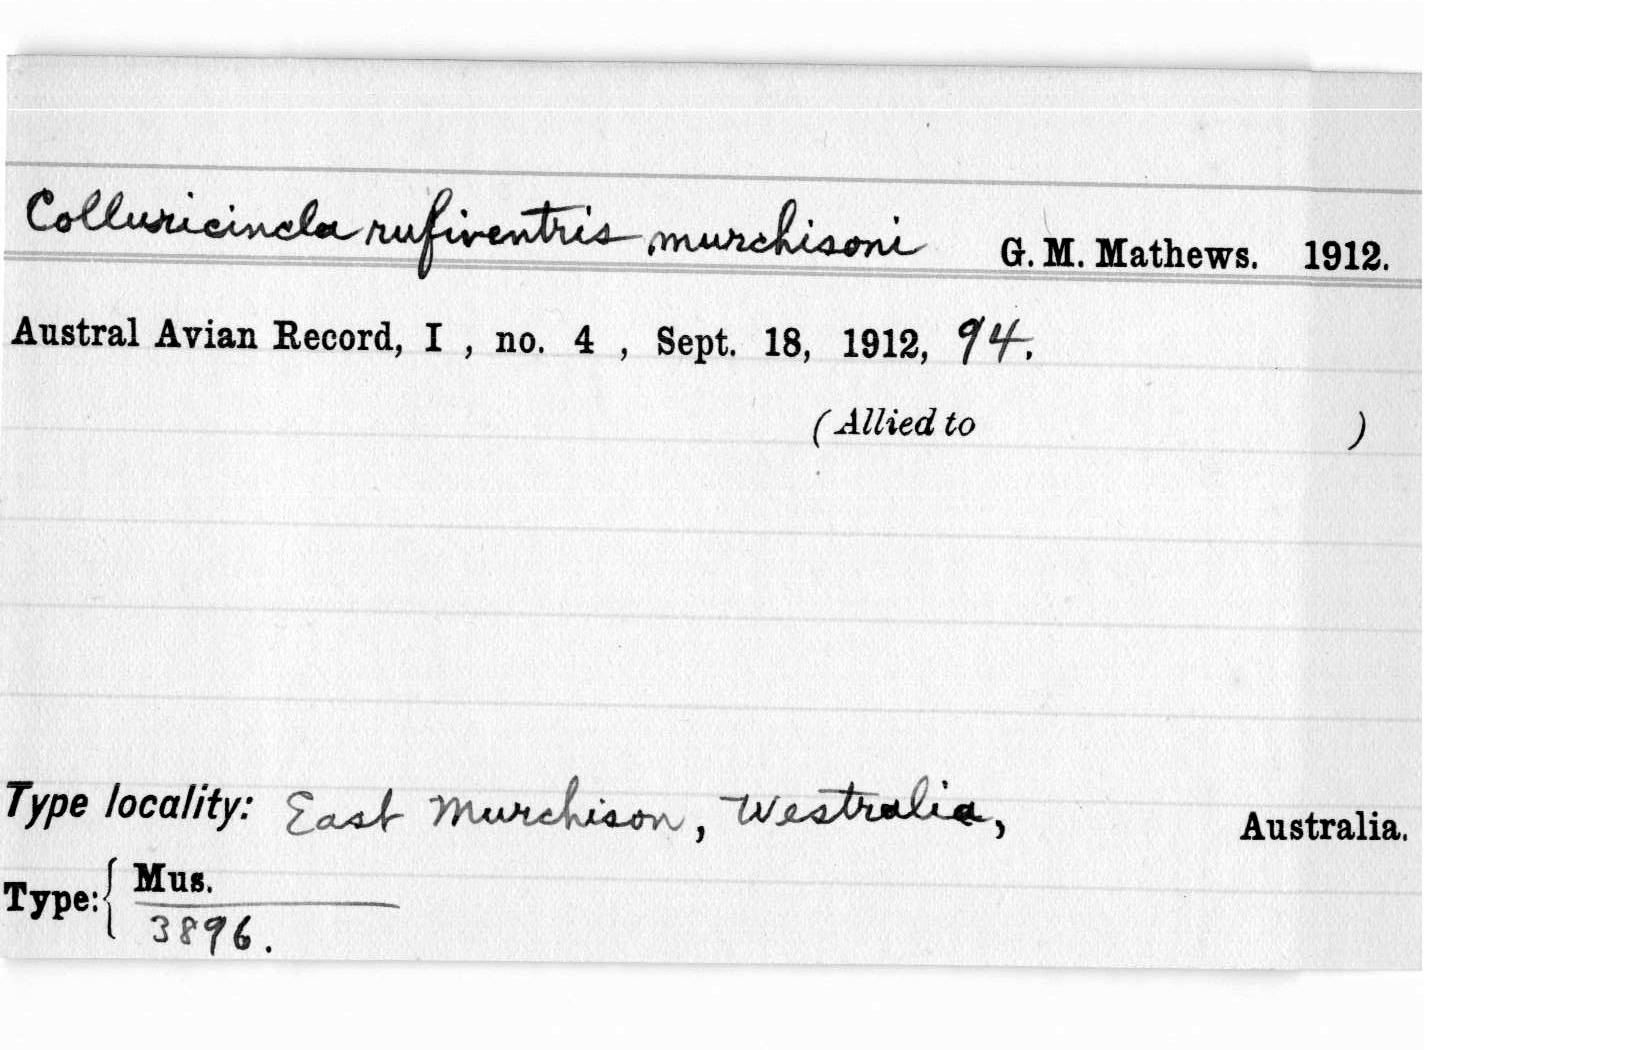 Colluricincla rufiventris murchisoni G. M. Mathews. 1912.
Austral Avian Record, I , no. 4 , Sept. 18, 1912, 94.
(Allied to )
Type locality: East Murchison, Westralia, Australia.
Type: { Mus.
3896.